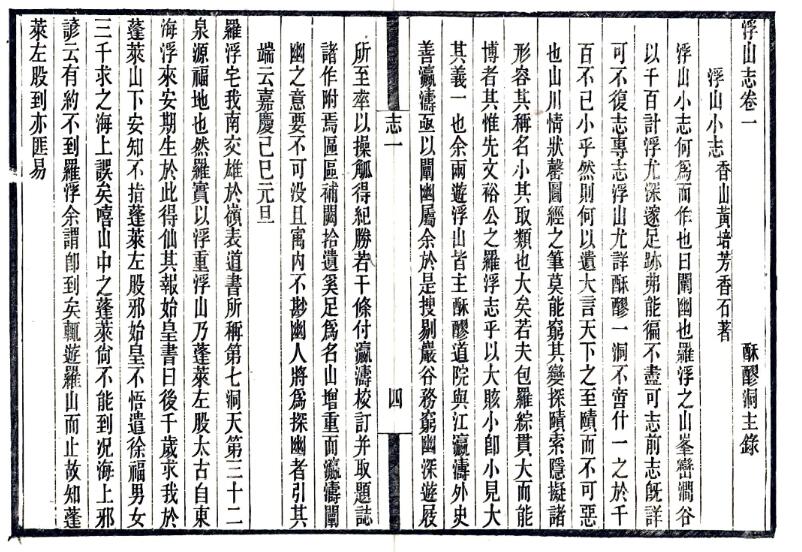 浮山志卷一
酥醪洞主錄
浮山小志
香山黃培芳香石著
浮山小志何爲而作也曰闡幽也羅浮之山峯巒澗谷
以千百計浮尤深邃足跡弗能徧不盡可志前志旣詳
可不復志專志浮山尤詳酥醪一洞不啻什一之於千
百不已小乎然則何以遺大言天下之至賾而不可惡
也山川情狀罄圖經之筆莫能窮其變探賾索隱擬諸
形容其稱名小其取類也大矣若夫包羅綜貫大而能
博者其惟先文裕公之羅浮志乎以大賅小卽小見大
其義一也余兩遊浮山皆主酥醪道院與江瀛濤外史
善瀛濤亟以闡幽屬余於是搜剔巖谷務窮幽深遊屐
志一
四
所至率以操觚得紀勝若干條付瀛濤校訂并取題誌
諸作附焉區區補闕拾遺奚足爲名山增重而瀛濤闡
幽之意要不可没且寓內不尠幽人將爲探幽者引其
端云嘉慶已巳元旦
羅浮宅我南交雄於嶺表道書所稱第七洞天第三十二
泉源福地也然羅實以浮重浮山乃蓬萊左股太古自東
海浮來安期生於此得仙其報始皇書曰後千歲求我於
蓬萊山下安知不指蓬萊左股邪始皇不悟遣徐福男女
三千求之海上誤矣嘻山中之蓬萊尙不能到况海上邪
諺云有約不到羅浮余謂卽到矣輒遊羅山而止故知蓬
萊左股到亦匪易